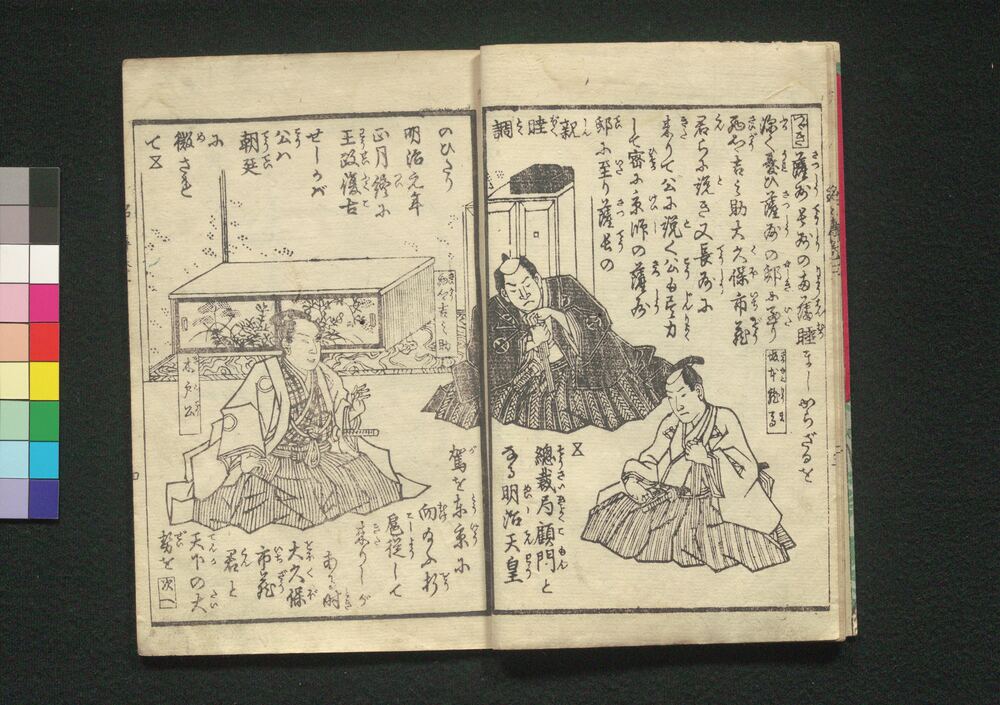 つゞき
薩州長州の両藩睦ましからざるを
深く憂ひ薩州の邸に至り
西郷吉之助大久保市蔵
君らに説き又長州に
来りて公に説く公も尽力
して密に京師の薩州
邸に至り薩長の
親睦調
のひたり
明治元年
正月終に
王政復古
せしかバ
公ハ
朝廷
に
徴され
て
総裁局顧問と
なる明治天皇
駕を東京に
向ふ折
扈従して
来りしが
ある時
大久保
市蔵
君と
天下の大
勢を
次へ
坂本龍馬
西郷吉之助
木戸公